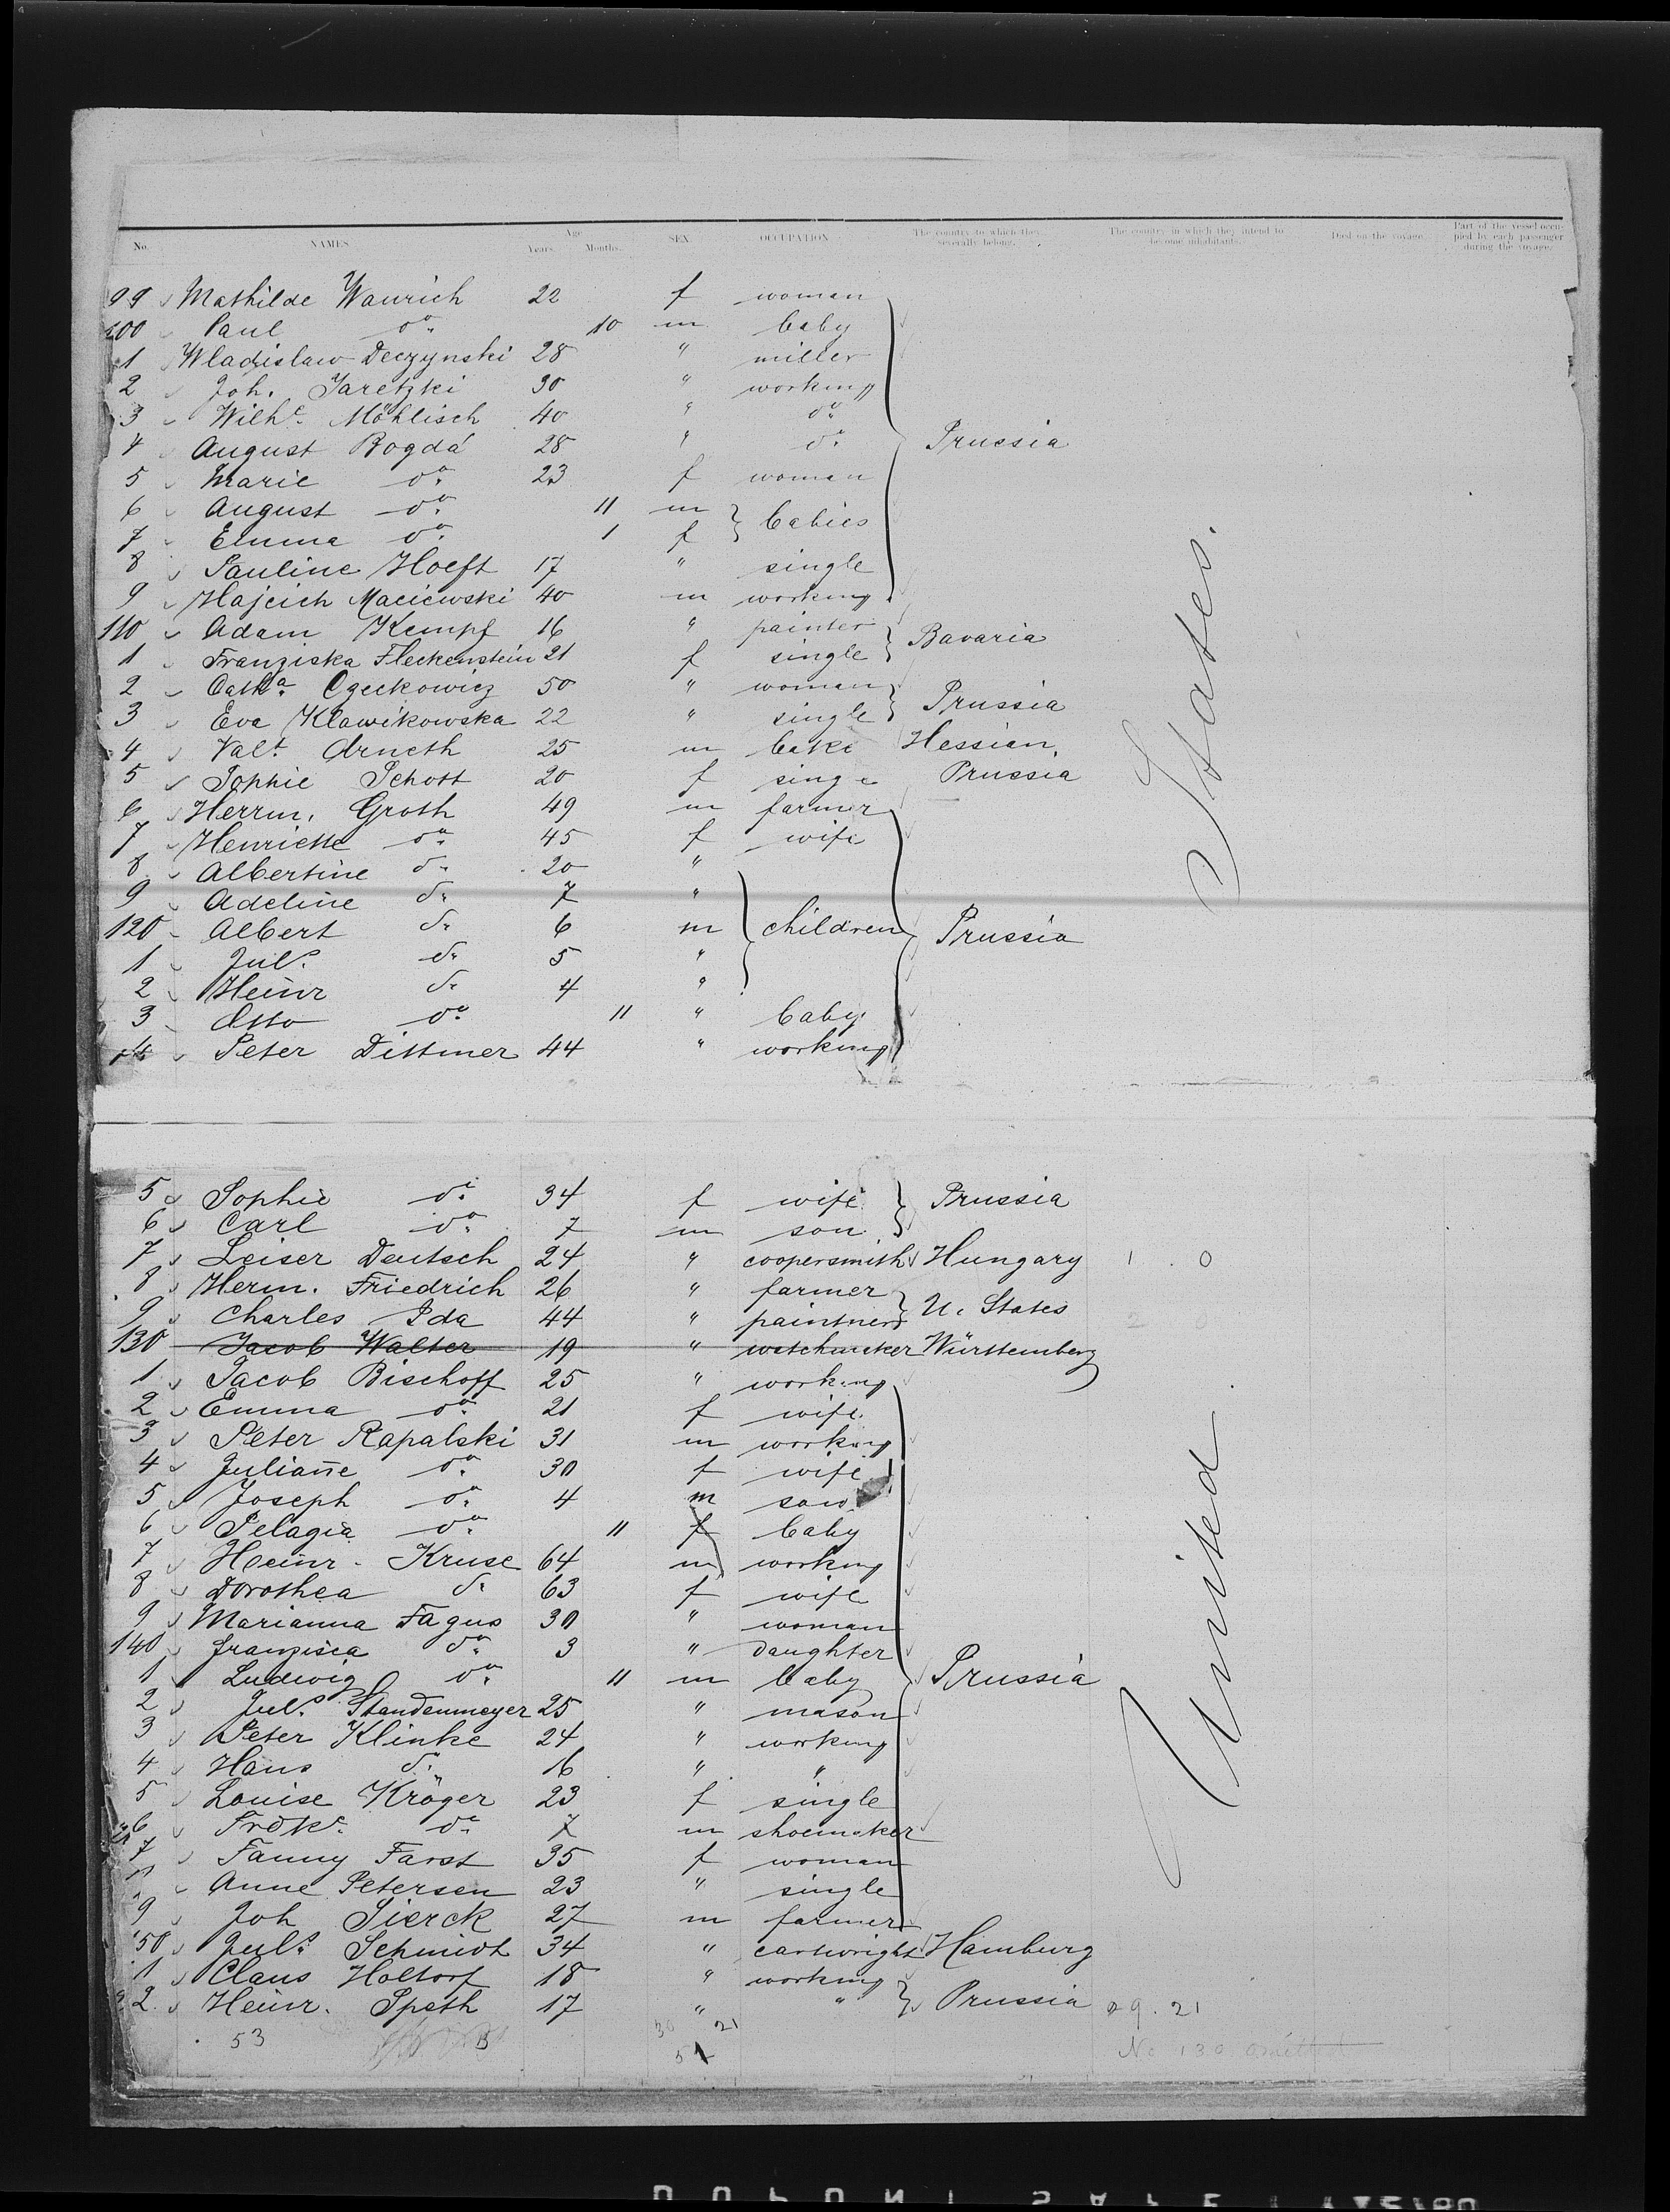 No. NAMES Age Years. Months. SEX. OCCUPATION The country to which they severally belong. The country in which they intend to become inhabitants. Died on the voyage. Part of the vessel occupied by each passenger during the voyage.
99 Mathilde Wanrich 22 f woman
100 Paul do. 10 m baby
1 Wladislaw Deczynski 28 " miller
2 Joh. Jaretzki 30 " working
3 Wilhe. Möhlisch 40 " do.
4 August Bogdá 28 " do. Prussia
5 Marie do. 23 f woman
6 August do. 11 m babies
7 Emma do. 1 f
8 Pauline Hoeft 17 " single
9 Hajcich Maciewski 40 m working
110 Adam Kempf 16 " painter Bavaria
1 Franziska Fleckenstein 21 f single
2 Catha. Czeckowicz 50 " woman Prussia
3 Eva Klawikowska 22 " single
4 Valt. Arneth 25 m bake Hessian.
5 Sophie Schott 20 f sing e Prussia
6 Herrm. Groth 49 m farmer
7 Henriette do. 45 f wife
8 Albertine do. 20 "
9 Adeline do. 7 "
120 Albert do. 6 m children Prussia
1 Juls. do. 5 "
2 Heinr do. 4 "
3 Otto do. 11 " baby
4 Peter Dittmer 44 " working
5 Sophie do. 34 f wife Prussia
6 Carl do. 7 m son
7 Leiser Deutsch 24 " coopersmith Hungary 1 . 0
8 Herm. Friedrich 26 " farmer U. States
9 Charles Ida 44 " paintner 2 0
130 Jacob Walter 19 " watchmaker Württemberg
1 Jacob Bischoff 25 " working
2 Emma do. 21 f wife
3 Peter Rapalski 31 m working
4 Juliane do. 30 f wife
5 Joseph do. 4 m son
6 Pelagia do. 11 f baby
7 Heinr. Kruse 64 m working
8 Dorothea do. 63 f wife
9 Marianna Fagus 30 " woman
140 Franzisca do. 3 " daughter
1 Ludwig do. 11 m baby Prussia
2 Juls. Standenmeyer 25 " mason
3 Peter Klinke 24 " working
4 Hans do. 16 " "
5 Louise Kröger 23 f single
6 Frdke. do. 7 m shoemaker
7 Fanny Farst 35 f woman
8 Anne Petersen 23 " single
9 Joh Sierck 27 m farmer
150 Juls. Schmidt 34 " cartwright Hamburg
1 Claus Holtorf 18 " working
2 Heinr. Speth 17 " " Prussia 29 . 21
53 30 21
51 No 130 omitted
United States.